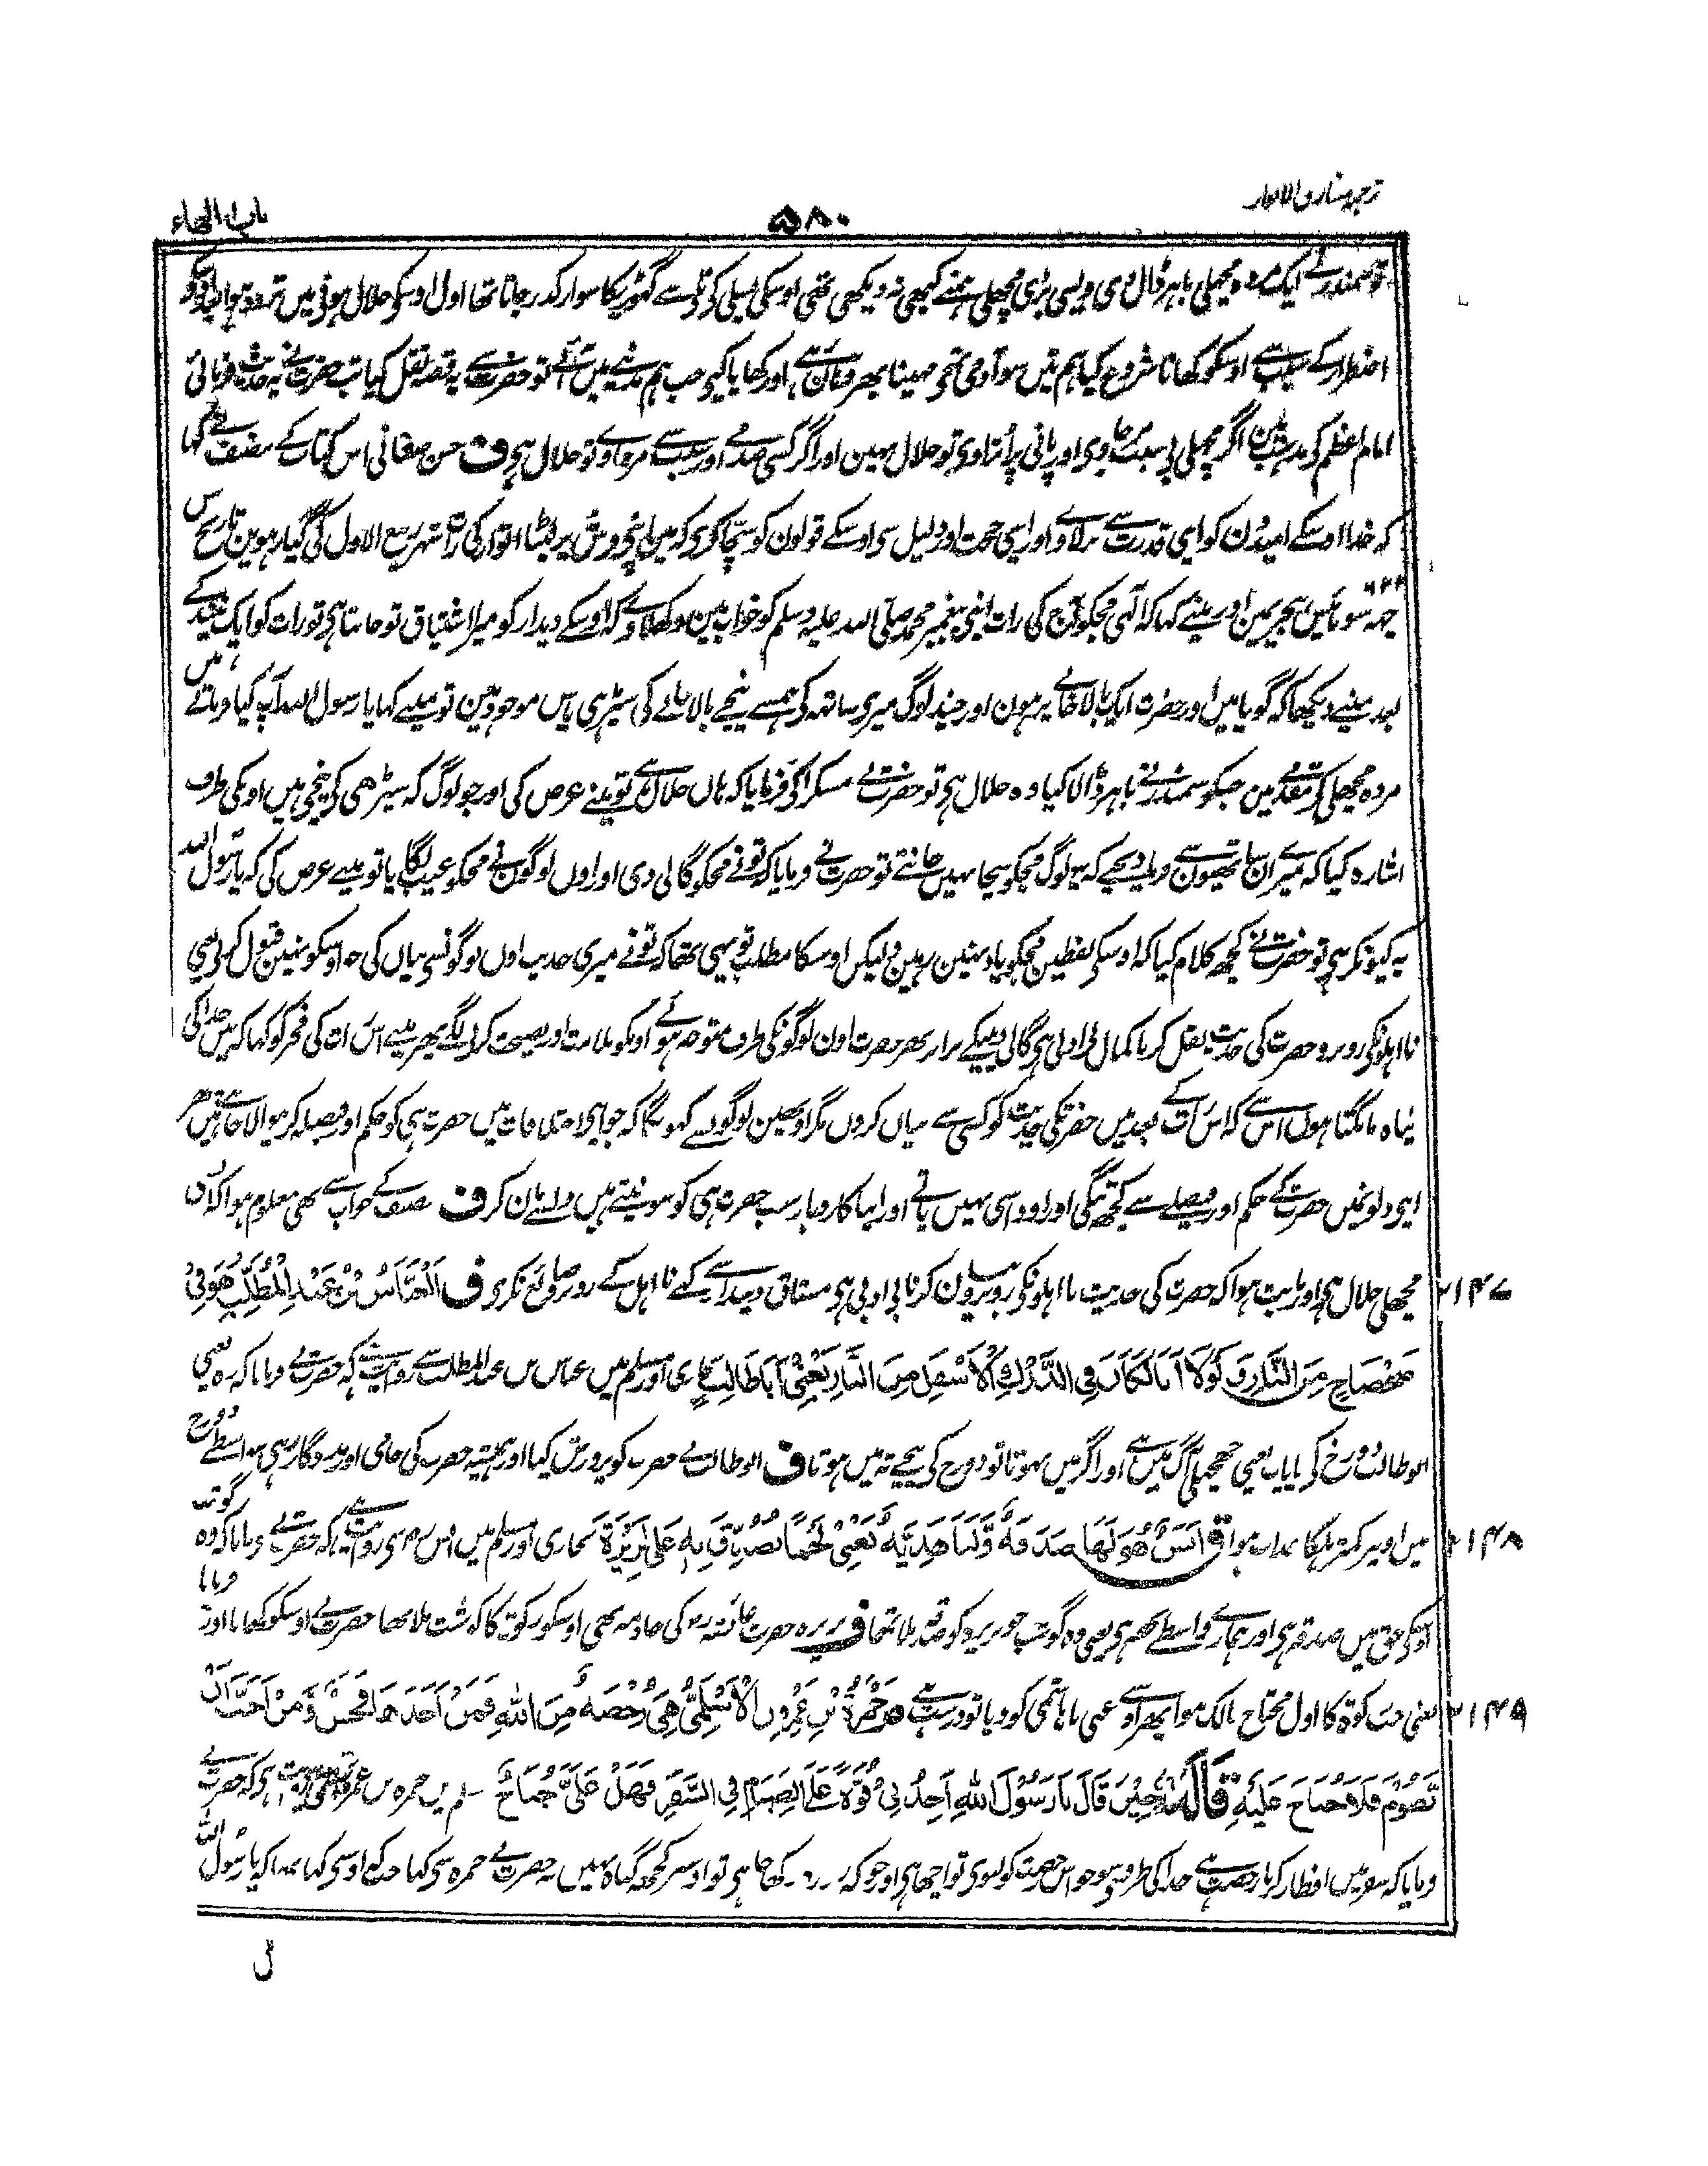 ترجمہ مشارق الانوار
۵۸۰
باب الهاء
تو سمندر نے ایک مردہ مچھلی باہر ڈال دی ویسی بڑی مچھلی ہمنے کبھی نہ دیکھی تھی اوسکی پسلی کی تلے سے گھوڑیکا سوار گذر جاتا تھا اول اوسکو حلال ہونی میں تردد ہوا
اضطرار کے سبب سے اوسکو کھانا شروع کیا ہم تین سو آدمی تھی مہینا بھر وہاں رہے اور کھایا کیے جب ہم مدینے میں آئے تو حضرت سے یہ قصہ نقل کیا تب حضرت نے یہ حدیث فرمائی
امام اعظم کی مذہب میں اگر مچھلی بے سبب مر جاوی اور پانی پر اُترا وی تو حلال نہین اور اگر کسی صدمے اور سبب سے مر جاوے تو حلال ہی ف حسن صغانی اس کتاب کے مصنف نے کہا
کہ خدا اوسکے امیدون کو اپنی قدرت سے بر لاوے اور اپنی حجت اور دلیل سی اوسکے قولون کو سچا کری کہ میں اپنی فرش پر لیٹا اتوار کی رات شہر ربیع الاول کی گیارہوین تاریخ سن
چھہ سو بائیس ہجری مین اور مینے کہا کہ الٰہی مجکو آج کی رات اپنی پیغمبر محمد صلی اللہ علیہ وسلم کو خواب مین دکھلا دے کہ اوسکے دیدار کو میرا اشتیاق تو جانتا ہی تو رات کو ایک نیند کے
بعد مینے دیکھا کہ گویا میں اور حضرت ایک بالا خانے پر ہون اور چند لوگ میری ساتھ کی ہمسے نیچے بالا خانے کی سیڑہی پاس موجود ہین تو مینے کہا یا رسول اللہ آپ کیا فرماتے ہیں
مردہ مچھلی کی مقدمے مین جسکو سمندر نے باہر ڈالا کیا وہ حلال ہی تو حضرت نے مسکرا کی فرمایا کہ ہاں حلال ہے تو مینے عرض کی اور جو لوگ کہ سیڑھی کی نیچی ہیں اونکی طرف
اشارہ کیا کہ میرے ان ساتھیون سے فرما دیجیے کہ یہ لوگ مجکو سچا نہیں جانتے تو حضرت نے فرمایا کہ تو نے مجکو گالی دی اور اون لوگون نے مجکو عیب لگایا تو مینے عرض کی کہ یا رسول اللہ
یہ کیونکر ہی تو حضرت نے کچھ کلام کیا کہ اوسکی لفظین مجکو یاد نہین رہین لیکن اوسکا مطلب تو یہی تھا کہ تو نے میری حدیث اون لوگونسی بیان کی جو اوسکو نہین قبول کرتے یعنی
نا اہلونکی روبرو حضرت کی حدیث نقل کرنا کمال بی ادبی ہی گالی دینیکے برابر پھر حضرت اون لوگونکی طرف متوجہ ہوئے اونکو ملامت اور نصیحت کرنے لگے پھر مینے اس رات کی فجر کو کہا کہ میں خدا کی
پناہ مانگتا ہوں اس سے کہ اس رات کے بعد میں حضرت کی حدیث کو کسی سے بیان کروں مگر اونھین لوگونسے کہونگا کہ جو اپنی اختلافات میں حضرت ہی کو حکم اور فیصلہ کرنیوالا جانتے ہین پھر
اپنی دلونمیں حضرت کے حکم اور فیصلے سے کچھ تنگی اور اوداسی نہیں پاتے اور اپنا کاروبار سب حضرت ہی کو سونپتے ہیں دل سے مان کر ف مصنف کے خواب سے بھی معلوم ہوا کہ ایسی
مچھلی حلال ہی اور ثابت ہوا کہ حضرت کی حدیث نا اہلونکی روبرو بیان کرنا بی ادبی ہی مشتاق دیندار سے کہے نا اہل کے روبرو ضائع نکری ف اَلْعَبَّاسُ بْنُ عَبْدِ الْمُطَّلِبِ هُوَ فِيْ
۲۱۴۷
ضَحْضَاحٍ مِنَ النَّارِ وَ لَوْلَا اَنَا لَكَانَ فِي الدَّرْكِ الْاَسْفَلِ مِنَ النَّارِ يَعْنِيْ اَبَا طَالِبٍ بخاری اور مسلم میں عباس بن عبد المطلب سے روایت ہے کہ حضرت نے فرمایا کہ وہ یعنی
ابو طالب دوزخ کی پایاب یعنی چھچھلی آگ میں ہے اور اگر میں نہوتا تو دوزخ کی نیچے تہ میں ہوتا ف ابو طالب نے حضرت کو پرورش کیا اور ہمیشہ حضرت کی حامی اور مددگار رہی اسواسطے دوزخ
میں اونپر کمتر ہلکا عذاب ہوا ق اَنَسٌ هُوَ لَهَا صَدَقَةٌ وَّلَنَا هَدِيَّةٌ يَعْنِيْ لَحْمًا تُصُدِّقَ بِهٖ عَلٰى بَرِيْرَةَ بخاری اور مسلم میں انس سی روایت ہے کہ حضرت نے فرمایا کہ وہ گوشت
۲۱۴۸
اوسکی حق میں صدقہ ہی اور ہمارے واسطے تحفہ ہی یعنی وہ گوشت جو بریرہ کو صدقہ ملا تھا ف بریرہ حضرت عائشہ رض کی خادمہ تھی اوسکو زکوۃ کا گوشت ملا تھا حضرت نے اوسکو کھایا اور فرمایا
یعنی جب زکوۃ کا اول محتاج مالک ہوا پھر اوس سے غنی یا ہاشمی کو دیا تو درست ہے م حَمْزَةُ بْنُ عَمْرٍو الْاَسْلَمِيُّ هِيَ رُخْصَةٌ مِنَ اللّٰهِ فَمَنْ اَخَذَ بِهَا فَحَسَنٌ وَّمَنْ اَحَبَّ اَنْ
۲۱۴۹
يَّصُوْمَ فَلَا جُنَاحَ عَلَيْهِ قَالَهٗ حِيْنَ قَالَ يَا رَسُوْلَ اللّٰهِ اَجِدُ بِيْ قُوَّةً عَلَى الصِّيَامِ فِي السَّفَرِ فَهَلْ عَلَيَّ جُنَاحٌ مسلم میں حمزہ بن عمرو اسلمی سے روایت ہی کہ حضرت نے
فرمایا کہ سفر میں افطار کرنا رخصت ہے خدا کی طرف سی سو جو اس رخصت کو لیوی تو اچھا ہی اور جو کہ روزہ رکھا چاہی تو اوسپر کچھ گناہ نہیں یہ حضرت نے حمزہ سی کہا جبکہ اوسی کہا تھا کہ یا رسول اللہ
ل